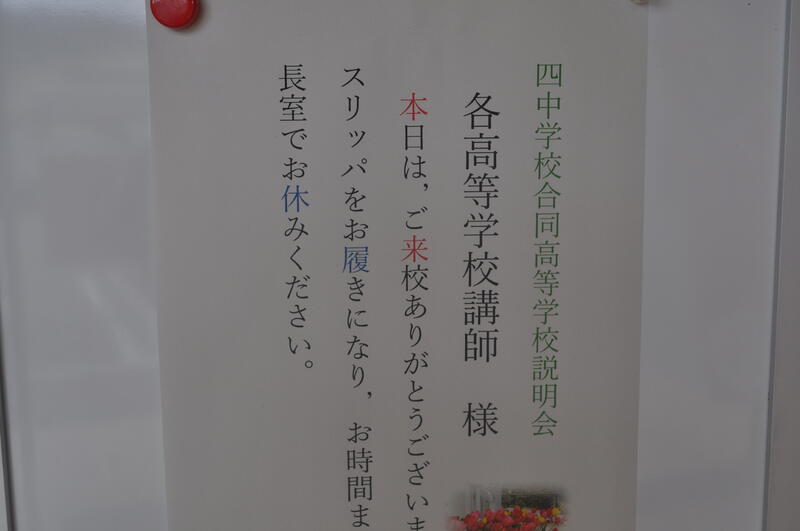 四中学校合同高等学校説明会
各高等学校講師　様
本日は，ご来校ありがとうございま
スリッパをお履きになり，お時間ま
長室でお休みください。